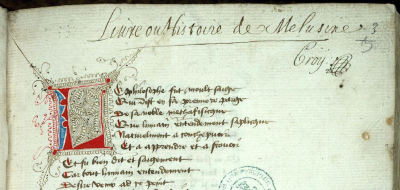 Livre ou Histoire de Melusine 3
5
Croÿ
Le philosophe fut moult saige
Qui dist en sa premiere paige
De sa noble methafisique
Que humain entendement sapplique
Naturelment a concepuoir
Et a aprendre et a sçauoir
Ce fu bien dit et saigement
Car tout humain entendement
Desire venir ad ce point